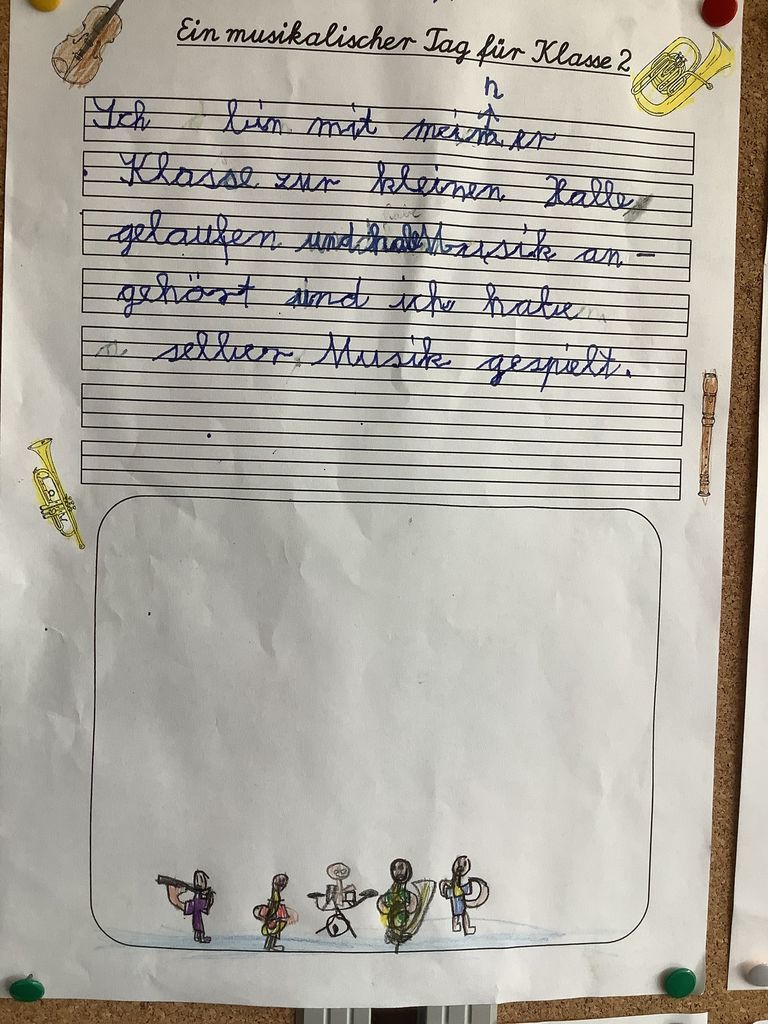 Ein musikalischer Tag für Klasse 2
n
Ich bin mit meiner
Klasse zur kleinen Halle
gelaufen und habe Musik an-
gehört und ich habe
selber Musik gespielt.